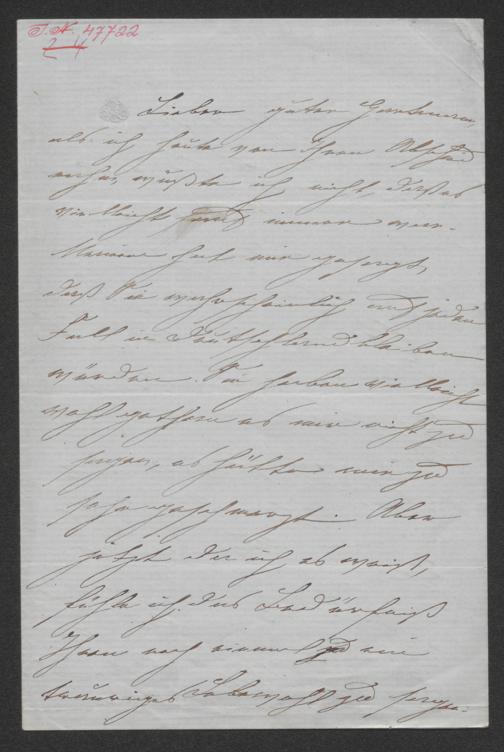 I. N. 47722
Lieber guter Hartmann,
als ich heute von Ihnen Abschied
nahm, wußte ich nicht, daß es
vielleicht für immer war.
Marie hat mir gesagt,
daß Sie wahrscheinlich auf jeden
Fall in Deutschland bleiben
würden. Sie haben vielleicht
wohl gethan es mir nicht zu
sagen, es hätte mich zu
sehr geschmerzt. Aber
jetzt da ich es weiß,
fühle ich das Bedürfniß
Ihnen noch einmal ein
trauriges Lebewohl zu sagen.